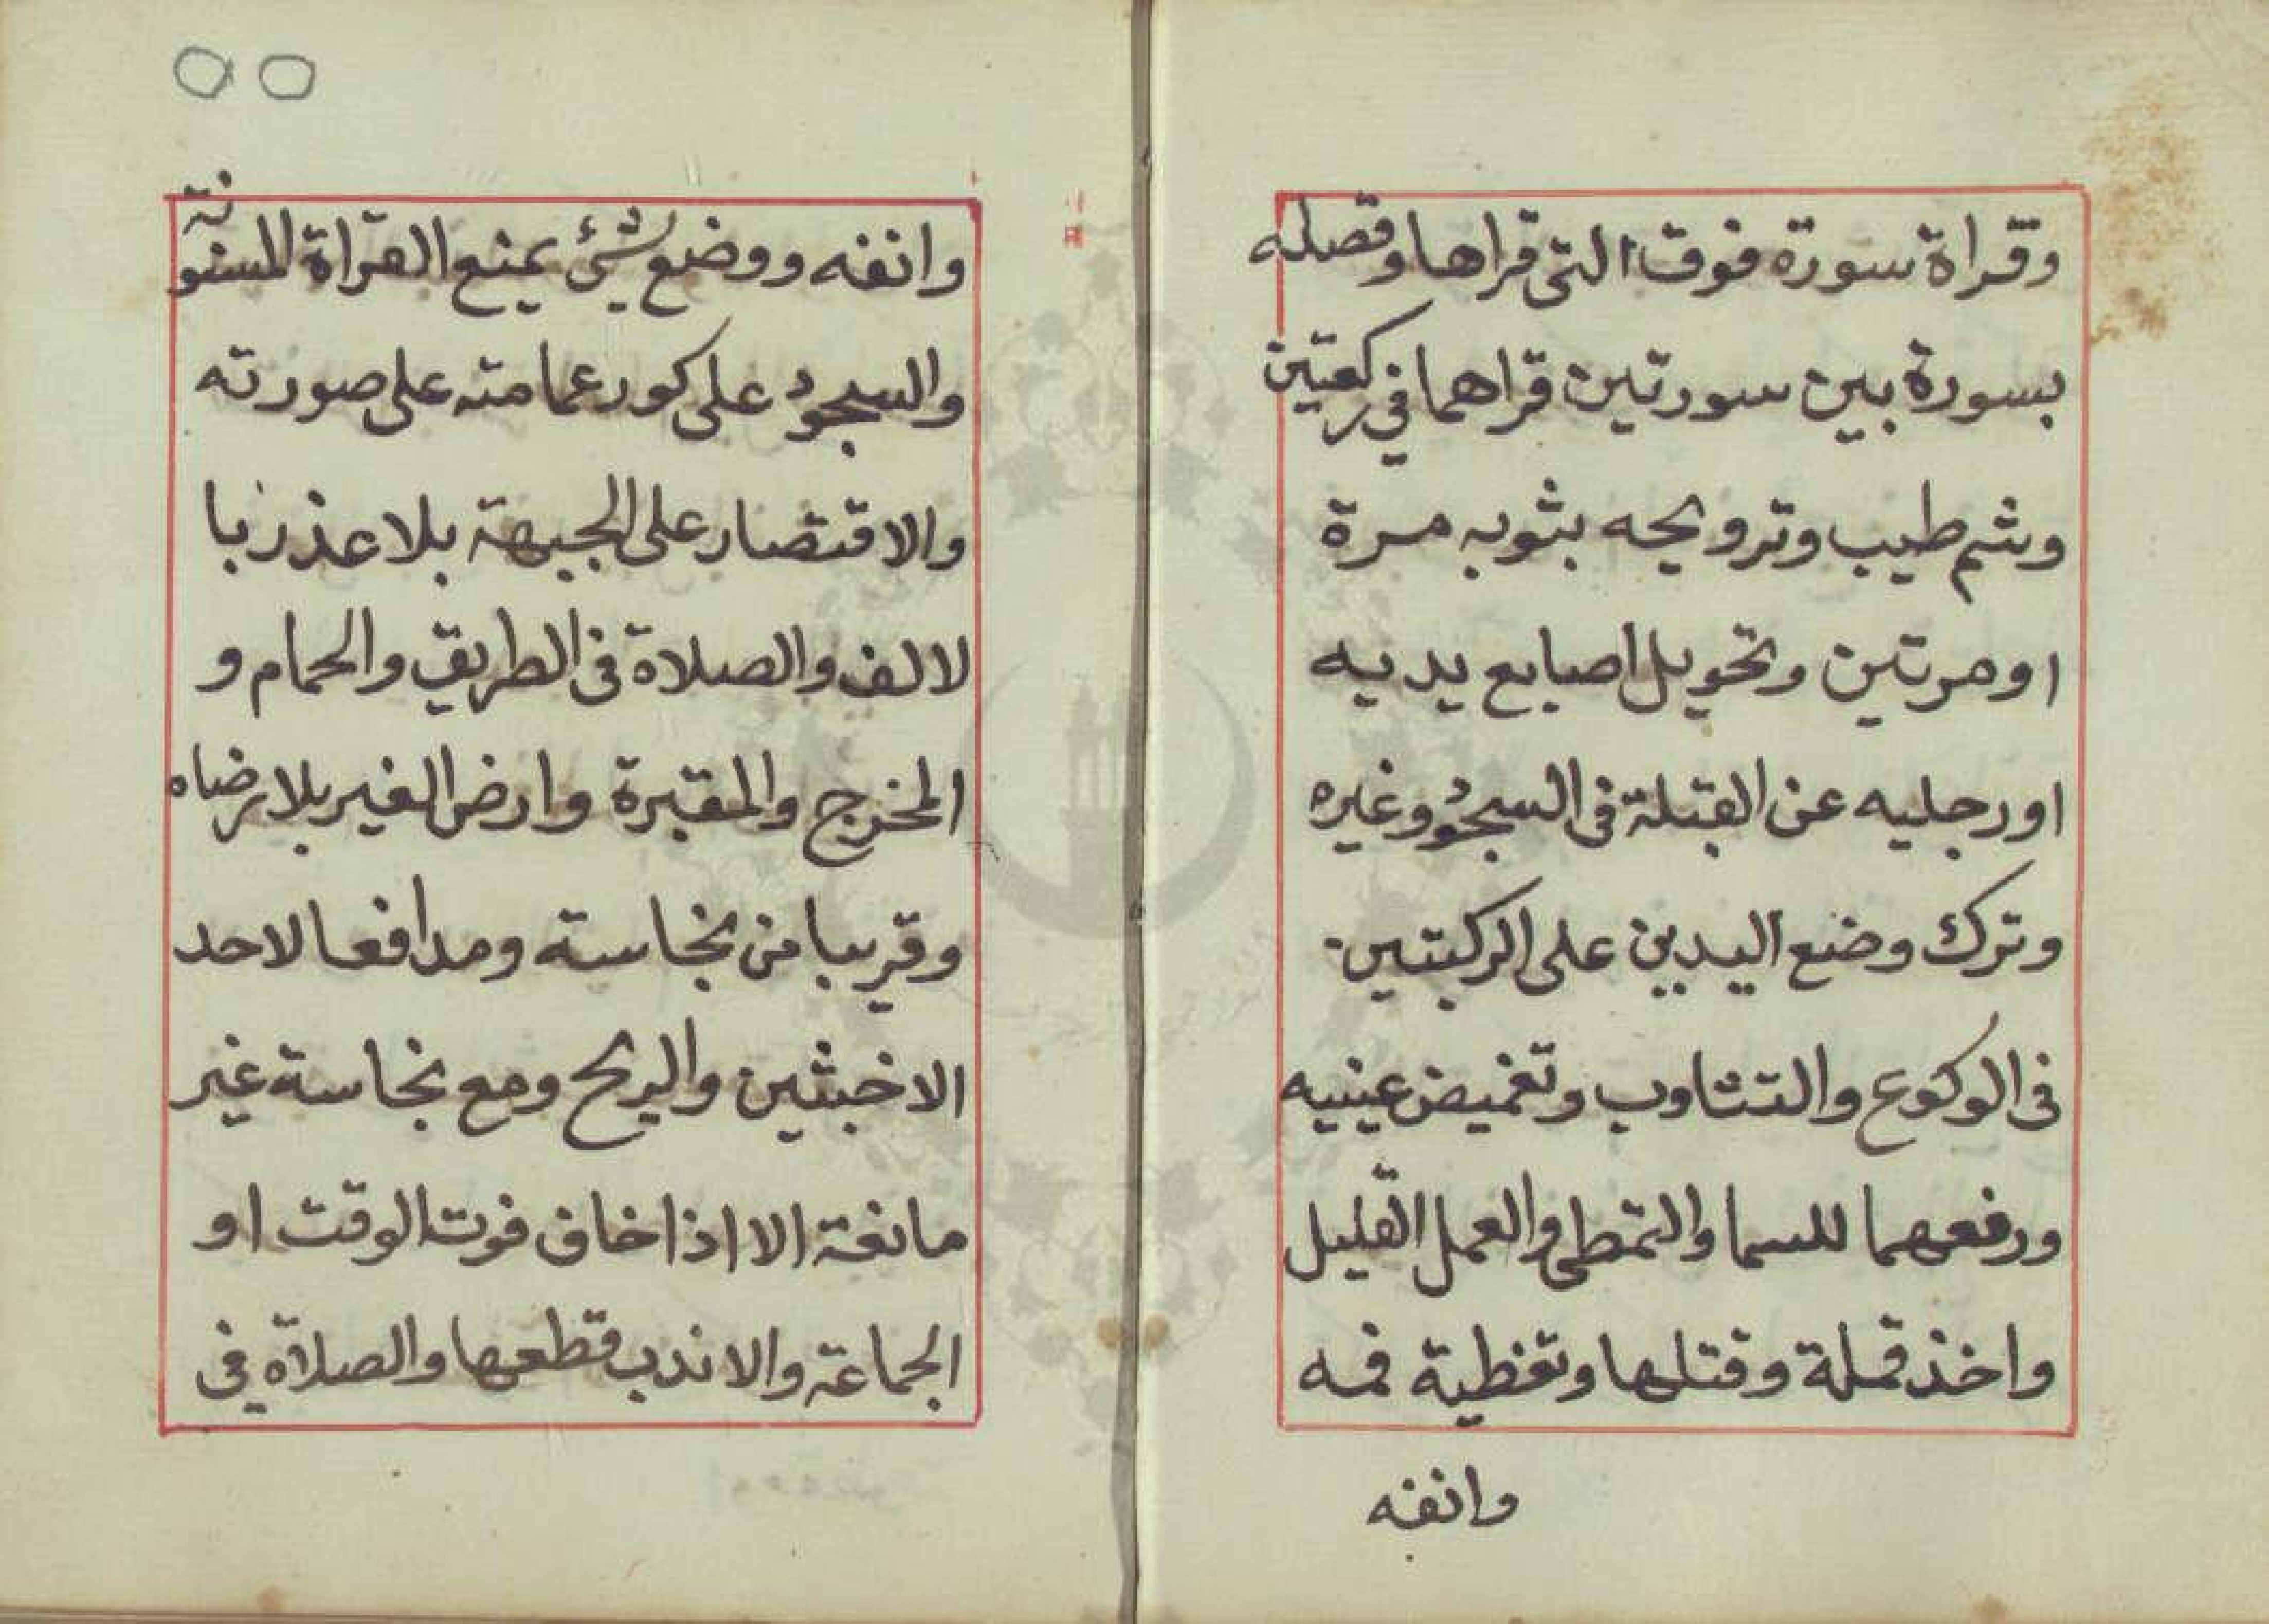 وقراة سورة فوق التى قراها وفصله
بسورة بين سورتين قراهما في ركعتين
وشم طيب وترويحه بثوبه مرة
او مرتين وتحويل اصابع يديه
او رجليه عن القبلة فى السجود وغيره
وترك وضع اليدين على الركبتين
فى الركوع والتثاوب وتغميض عينيه
ورفعهما للسما والتمطى والعمل القليل
واخذ قملة وقتلها وتغطية فمه
وانفه
٥٥
وانفه ووضع شئ يمنع القراة المسنونة
والسجود على كور عمامته على صورته
والاقتصار على الجبهة بلا عذر با
لالف والصلاة فى الطريق والحمام و
المخرج والمقبرة وارض الغير بلا رضاه
وقريبا من نجاسة ومدافعا لاحد
الاخبثين والريح ومع نجاسة غير
مانعة الا اذا خاف فوت الوقت او
الجماعة والا ندب قطعها والصلاة فى